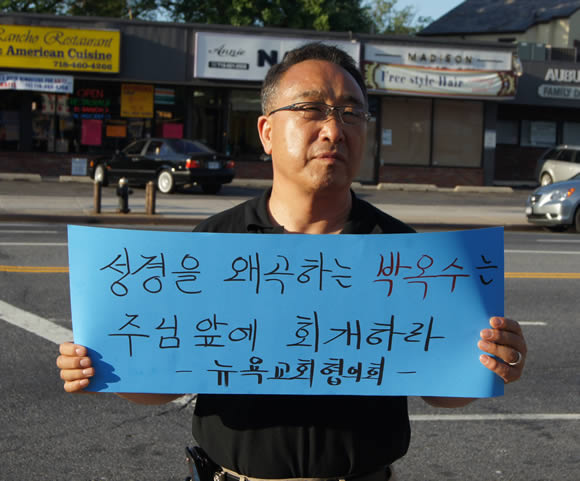 Rancho Restaurant
American Cuisine
718-460-4266
OPEN
Annie
MADISON
Free style Hair
AUBU
FAMILY D
성경을 왜곡하는 박옥수는
주님 앞에 회개하라
- 뉴욕교회협의회 -